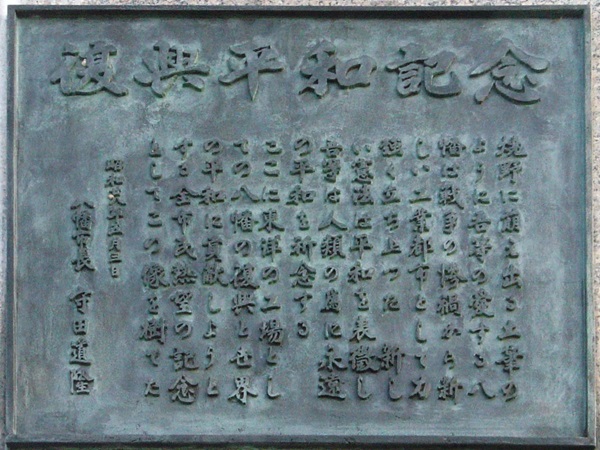 復興平和記念
焼野に萌え出る土筆の
ように吾等の愛する八
幡は戦争の惨禍から新
しい工業都市として力
強く立ち上つた 新し
い憲法は平和を表徴し
吾等は人類の為に永遠
の平和を祈念する
ここに東洋の工場とし
ての八幡の復興と世界
の平和に貢献しようと
する全市民熱望の記念
としてこの像を樹てた
昭和 年五月三日
八幡市長 守田道隆